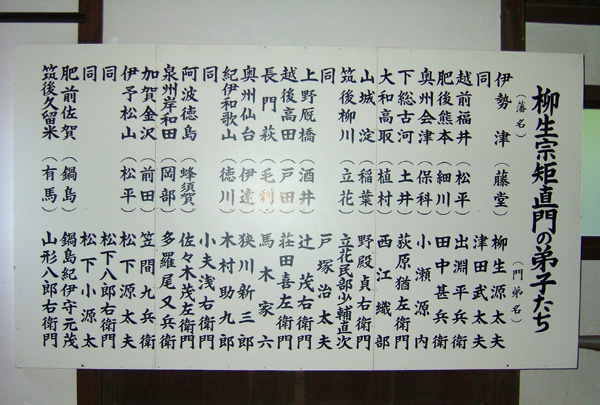 柳生宗矩直門の弟子たち
（藩名）　（門弟名）
伊勢　津（藤堂）柳生源太夫
同　津田武太夫
越前福井（松平）出淵平兵衛
肥後熊本（細川）田中甚兵衛
奥州会津（保科）小瀬源内
下総古河（土井）萩原猶左衛門
大和高取（植村）西江織部
山城　淀（稲葉）野殿貞右衛門
筑後柳川（立花）立花民部少輔直次
同　戸塚治太夫
上野厩橋（酒井）辻茂右衛門
越後高田（戸田）荘田喜左衛門
長門萩（毛利）馬木家六
奥州仙台（伊達）狭川新三郎
紀伊和歌山（徳川）木村助九郎
同　小夫浅右衛門
阿波徳島（蜂須賀）佐々木茂左衛門
泉州岸和田（岡部）多羅尾又兵衛
加賀金沢（前田）笠間九兵衛
伊予松山（松平）松下源太夫
同　松下八郎右衛門
同　松下小源太
肥前佐賀（鍋島）鍋島紀伊守元茂
筑後久留米（有馬）山形八郎右衛門